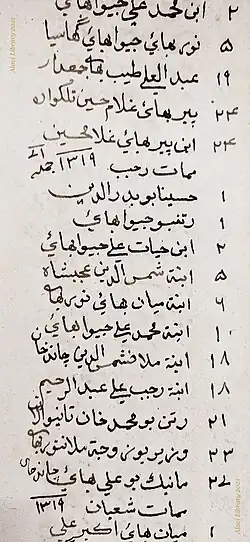 ٢ ابن محمد علي جيوا بهائي
٥ نور بهائي جيوا بهائي گهاسيا
١٩ عبد العلي طيب بها جمعدار
٢٤ پير بهائي غلام حسين تلكوان
٢٤ ابن پير بهائي غلامحسين
ممات رجب ١٣١٩
١ حسينابو بدر الدين
١ رتنبو جيوا بهائي
٢ ابن حيات علي جيوا بهائي
٥ ابنة شمس الدين عجبشاه
٦ ابنة ميان بهائي نور بها
١٠ ابنة محمد علي جيوا بهائي
١٨ ابنة ملا شمس الدين چاندخان
١٨ ابنة رجب علي عبد الرحيم
٢١ رتن بو محمد خان
٢٣ وزير بو زوجة ملا نور بها
٢٤ مانيك بو علي بهائي چاندخان
ممات شعبان ١٣١٩
١ ميان بهائي اكبر علي
Atmj Library 2021
Atmj Library 2021